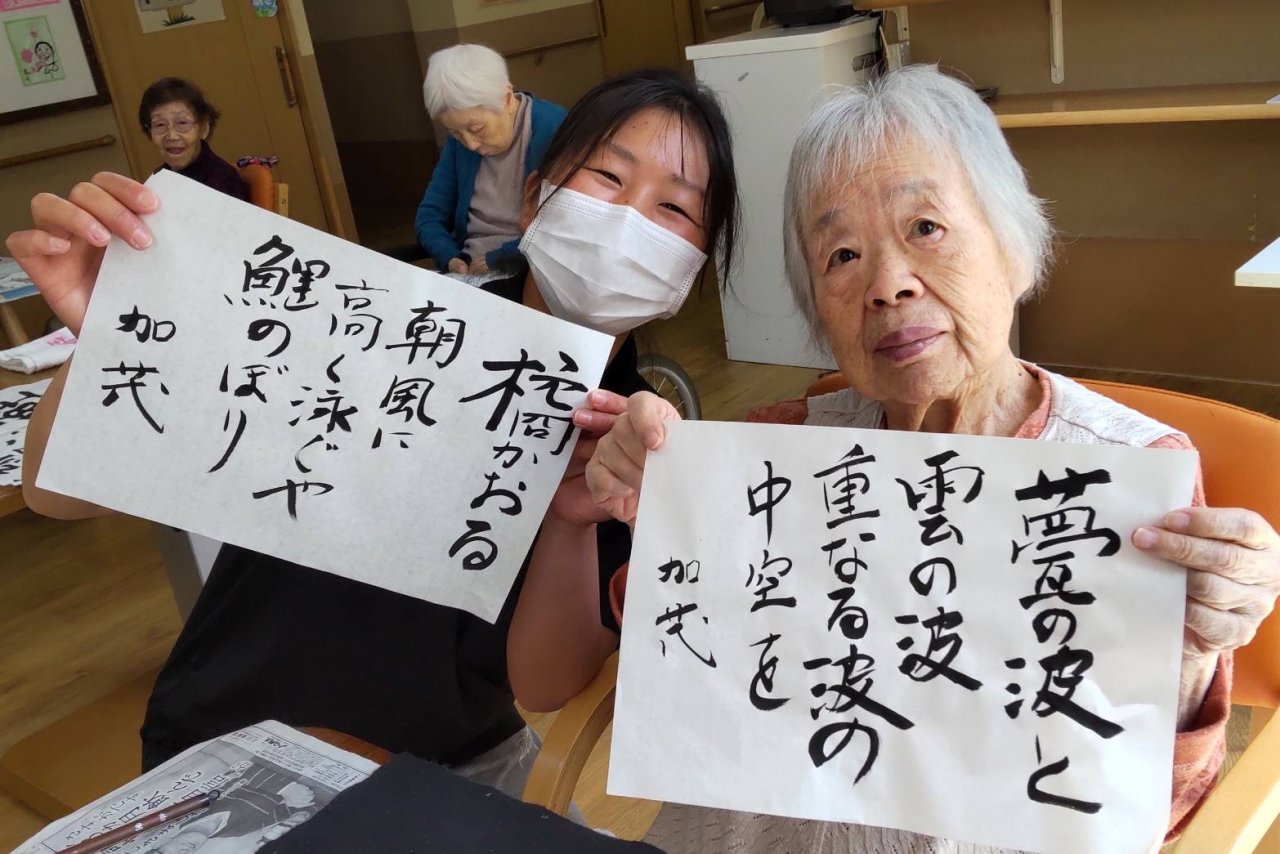 かおる
朝風に
高く泳ぐや
鯉のぼり
加茂
甍の波と
雲の波
重なる波の
中空を
加茂